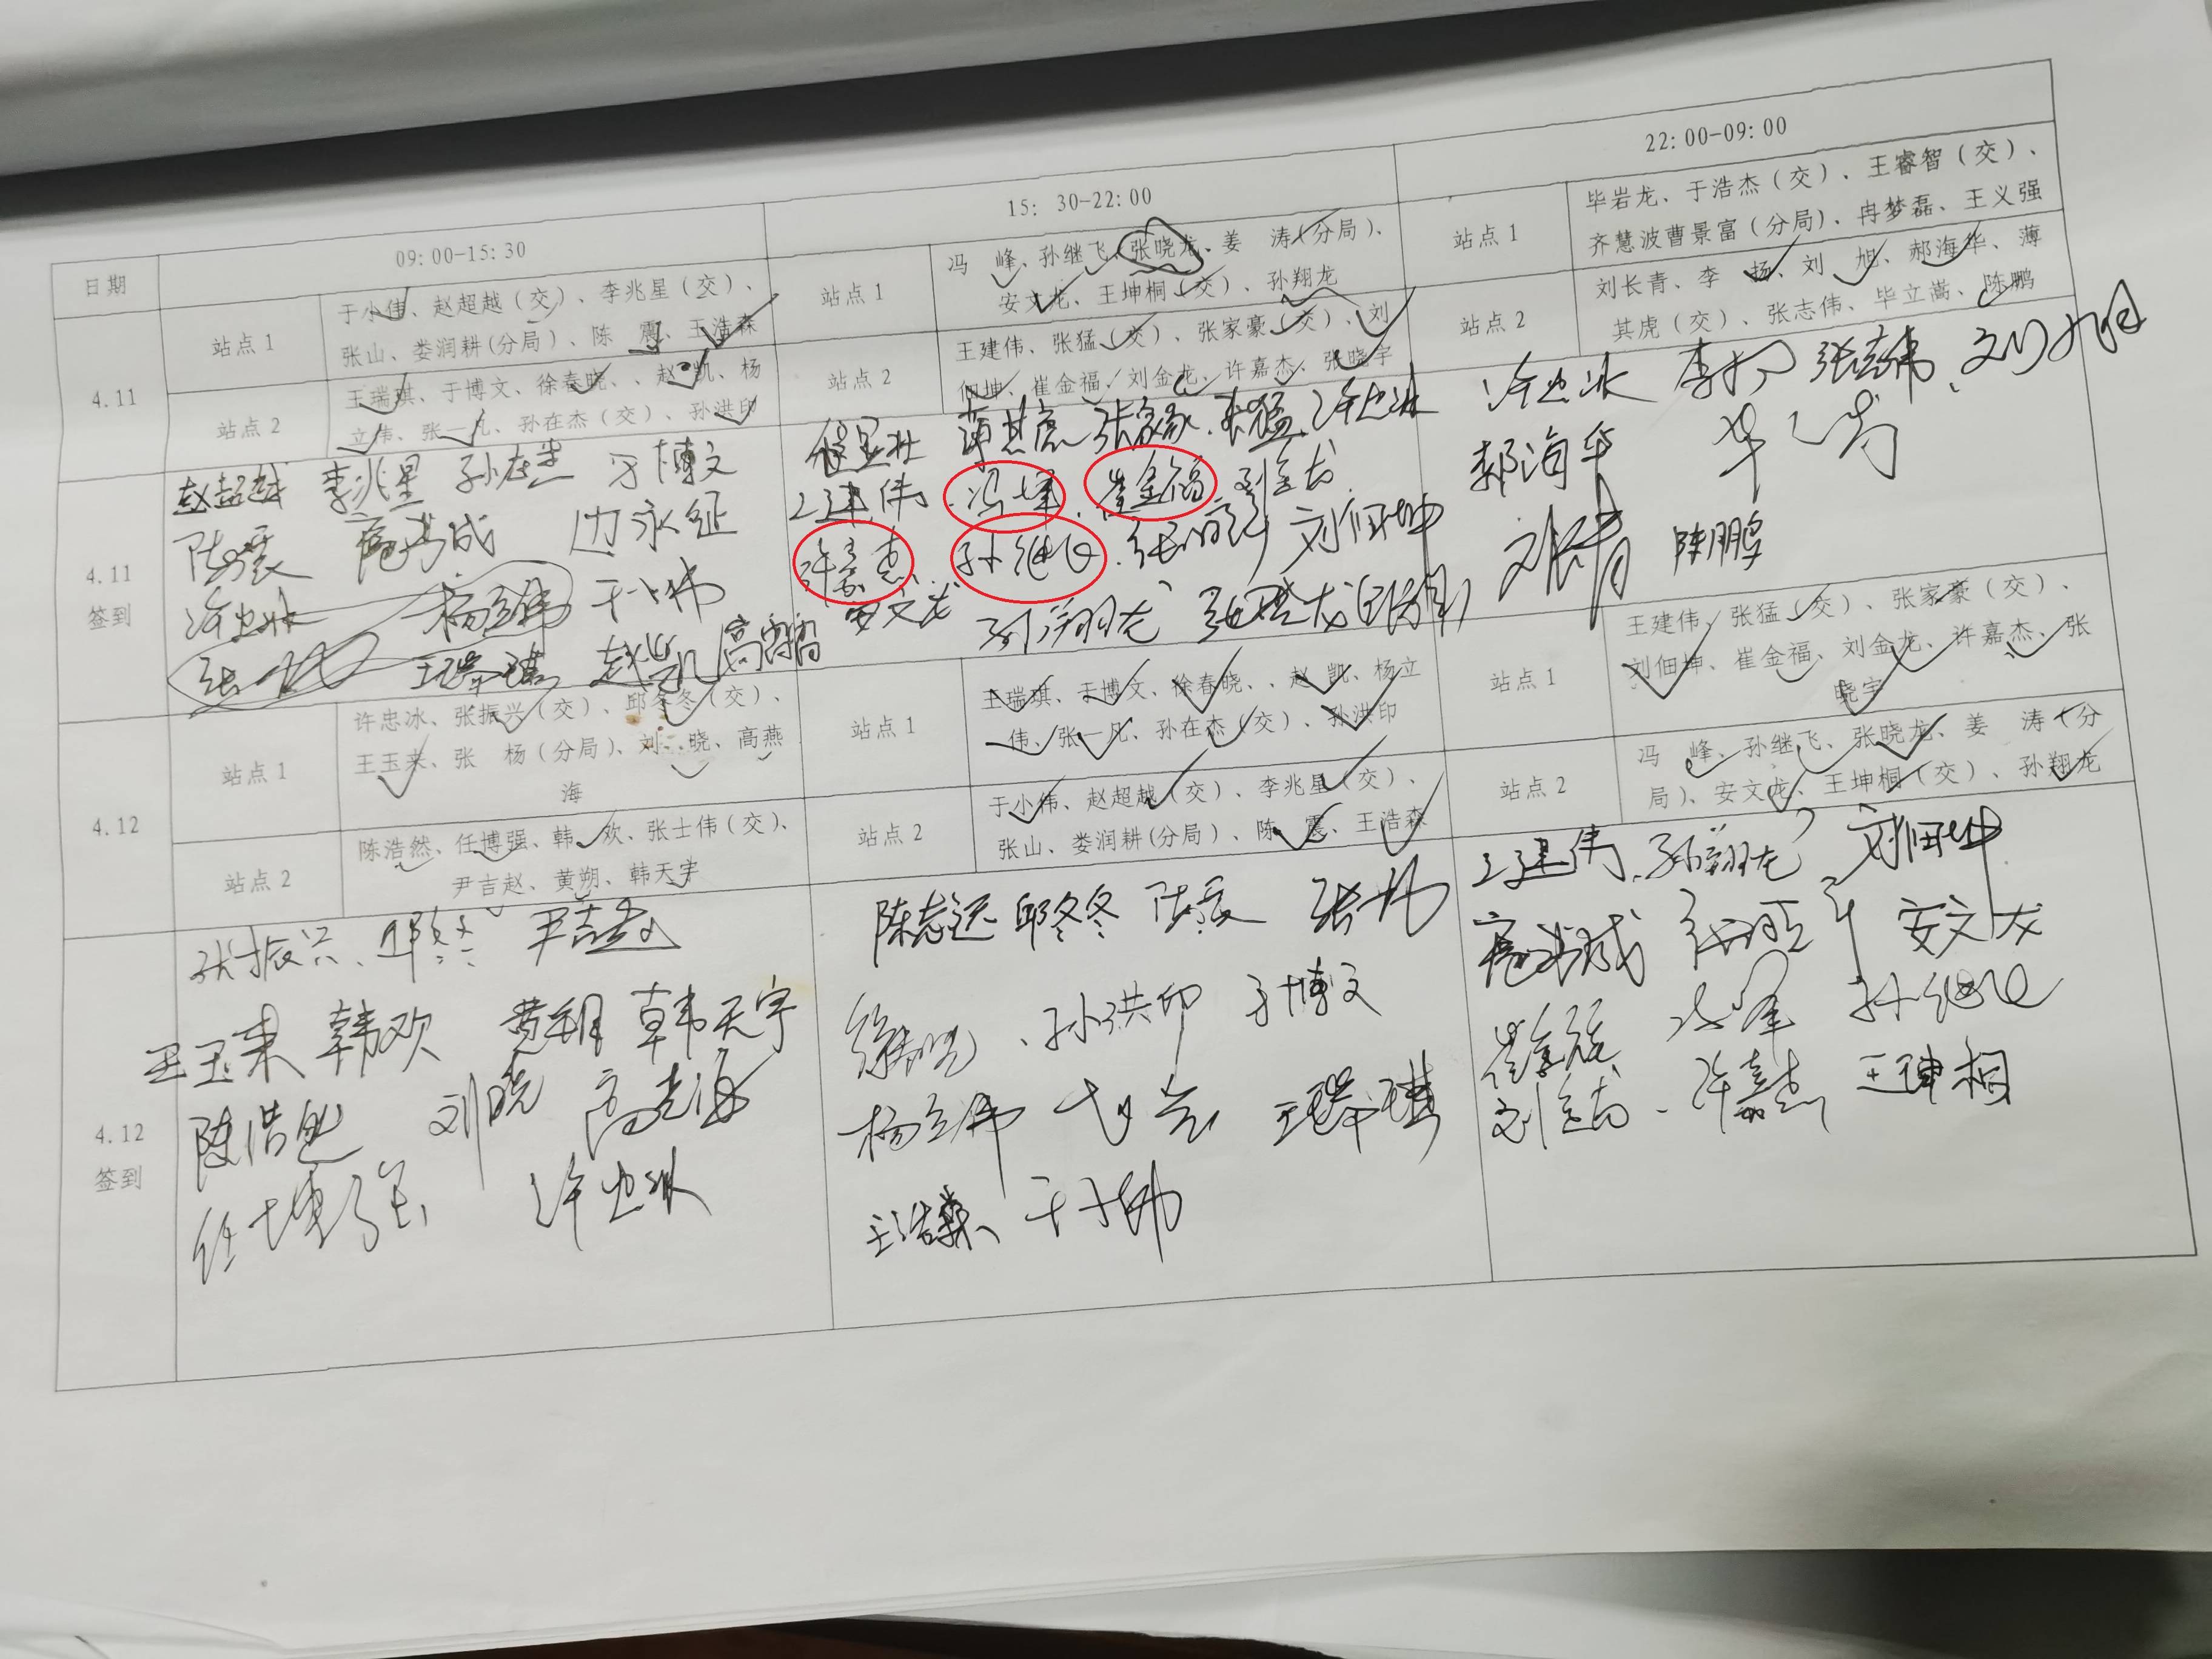 日期
09:00-15:30
15: 30-22:00
22:00-09:00
4.11
站点1
于小伟、赵超越（交）、李兆星（交）、
张山、娄润耕(分局)、陈 震、王浩森
站点1
冯 峰、孙继飞、张晓龙、姜 涛（分局）、
安文龙、王坤桐（交）、孙翔龙
站点1
毕岩龙、于浩杰（交）、王睿智（交）、
齐慧波曹景富（分局）、冉梦磊、王义强
站点2
王瑞琪、于博文、徐春晓、、赵 凯、杨
立伟、张一凡、孙在杰（交）、孙洪印
站点2
王建伟、张猛（交）、张家豪（交）、刘
佃坤、崔金福、刘金龙、许嘉杰、张晓宇
站点2
刘长青、李 扬、刘 旭、郝海华、薄
其虎（交）、张志伟、毕立嵩、陈鹏
4.11
签到
赵超越 李兆星 孙在杰 于博文
陈震 边永征
许忠冰 杨立伟 于小伟
王瑞琪 赵凯
薄其虎 张家豪 张猛 许忠冰
王建伟 冯峰 崔金福 刘金龙
许嘉杰 孙继飞 刘佃坤
安文龙 孙翔龙
许忠冰 李扬 张志伟 刘旭
郝海华
刘长青 陈鹏
4.12
站点1
许忠冰、张振兴（交）、邱冬冬（交）、
王玉来、张 杨（分局）、刘 晓、高燕
海
站点1
王瑞琪、于博文、徐春晓、、赵 凯、杨立
伟、张一凡、孙在杰（交）、孙洪印
站点1
王建伟、张猛（交）、张家豪（交）、
刘佃坤、崔金福、刘金龙、许嘉杰、张
晓宇
站点2
陈浩然、任博强、韩 欢、张士伟（交）、
尹吉赵、黄朔、韩天宇
站点2
于小伟、赵超越（交）、李兆星（交）、
张山、娄润耕(分局)、陈 震、王浩森
站点2
冯 峰、孙继飞、张晓龙、姜 涛（分
局）、安文龙、王坤桐（交）、孙翔龙
4.12
签到
张振兴、邱冬冬 尹吉赵
王玉来 韩欢 黄朔 韩天宇
陈浩然 刘晓 高燕海
任博强 许忠冰
陈志远 邱冬冬 陈震
徐春晓、孙洪印 于博文
杨立伟 王瑞琪
王浩森 于小伟
王建伟 孙翔龙 刘佃坤
安文龙
崔金福 冯峰 孙继飞
刘金龙 许嘉杰 王坤桐